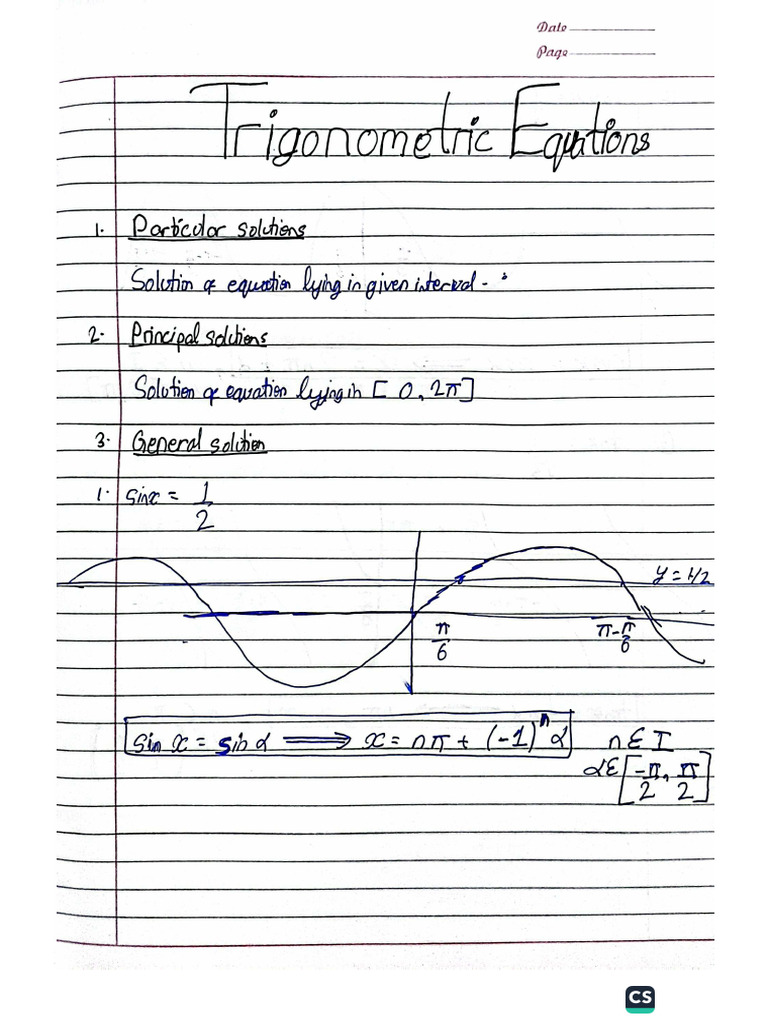 Date
Page
Trigonometric Equations
1. Particular solutions
Solution of equation lying in given interval - :
2. Principal solutions
Solution of equation lying in [ 0, 2π]
3. General solution
1. sinx = 1/2
y = 1/2
π/6
π - π/6
sin x = sin α ⟹ x = nπ + (-1)^n α n ∈ I
α ∈ [-π/2, π/2]
CS